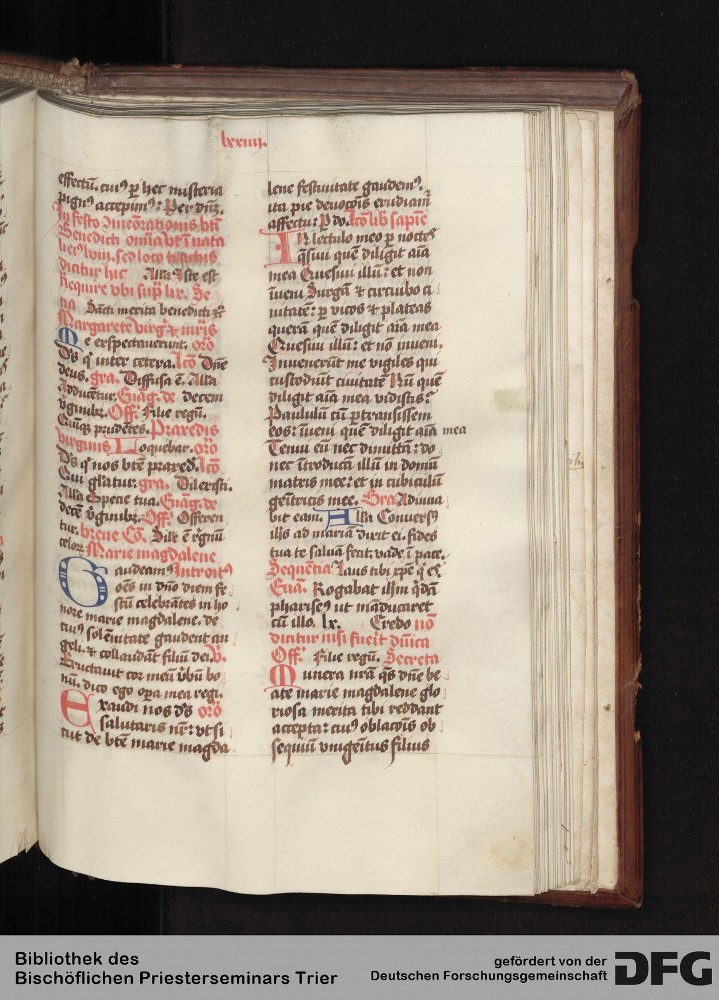 lxxiiij.
effectū. cuiꝯ ꝑ hec misteria
pignꝯ accepimꝯ: Per dn̄z.
In festo ꝯmeōrationis bt̄i
Benedicti om̄ia
dicitur hic Alla Iste est
Require vbi supͣ lx. Se
Sācti merita benedicti
Margarete virgͥs et mr̄is
Me exspectauerunt. or̄o
Ds̄ qͥ inter cetera. Lc̄o Dn̄e
deus. gra. Diffusa ē. Alla
Adducētur. Euāg. de decem
v̓ginibꝫ. Off. Filie regū.
Quīqꝫ prudētes. Praxedis
virginis Loquebar. or̄o
Ds̄ qͥ nos bt̄e praxed̓. Lc̄o
Qui gl̄atur. gra. Dilexisti.
Alla Specie tua. Euāg. de
decē v̓ginibꝫ. Off. Offeren
tur. breue Cō. Sile ē regnū
celorꝫ Marie magdalene
Gaudeamꝯ Introitꝯ
oēs in dn̄o diem fe
stū celebrātes in ho
nore marie magdalene. de
cuiꝯ solēnitate gaudent an
geli. et collaudāt filiū dei. V.
Eructauit cor meū v̓bū bo
nū. dico ego oꝑa mea regi.
Exaudi nos ds̄ or̄o
salutaris nr̄: vt si
cut de bt̄e marie magda
lene festiuitate gaudemꝯ.
ita pie deuocōis erudiam̄
affectu: P do. Lc̄o lib sapiē
In lectulo meo ꝑ noctes
q̄siui quē diligit aīa
mea Quesiui illū: et non
īueni Surgā et circuibo ci
uitatē: ꝑ vicos et plateas
querā quē diligit aīa mea
Quesiui illū: et nō īueni.
Inuenerūt me vigiles qui
custodiūt ciuitatē Nū quē
diligit aīa mea vidistis?
Paululū cū ꝑtransissem
eos: īueni quē diligit aīa mea
Tenui eū nec dimittā: do
nec ītroducā illū in domū
matris mee: et in cubiculū
genītricis mee. Gra. Adiuua
bit eam. Alla Conuersꝯ
ihs̄ ad mariā dixit ei. fides
tua te saluā fecit: vade ī pace.
Sequentia Laus tibi xp̄e qͥ es
Euā. Rogabat ihm̄ q̇dā
phariseꝯ ut māducaret
cū illo. lx. Credo nō
dicitur nisi fuerit dn̄ica
Off. Filie regū. Secreta
Munera nr̄a q̄s dn̄e be
ate marie magdalene glo
riosa merita tibi reddant
accepta: cuiꝯ oblacōis ob
sequiū vnigenītus filius
Bibliothek des
Bischöflichen Priesterseminars Trier
gefördert von der
Deutschen Forschungsgemeinschaft
DFG